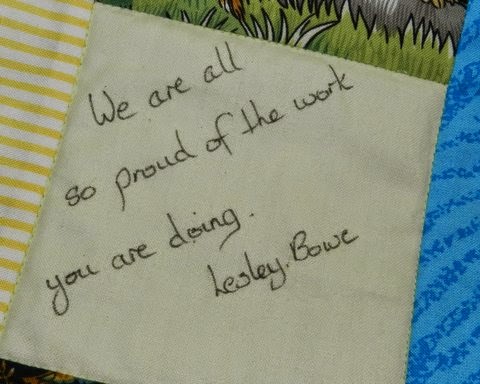 We are all
so proud of the work
you are doing.
Lesley. Bowe